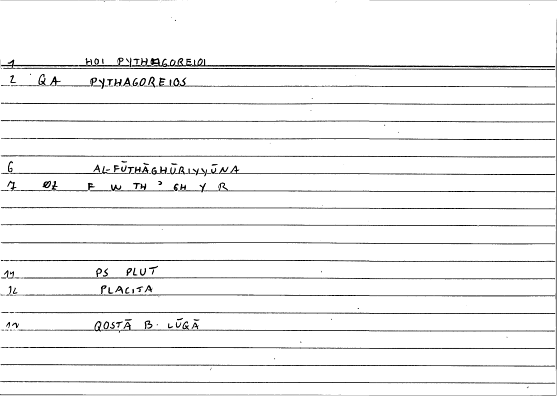 1 HOI PYTHAGOREIOI
2 QA PYTHAGOREIOS
6 AL-FŪTHĀGHŪRIYYŪNA
7 F W TH ʾ GH Y R
PS PLUT
PLACITA
QOSṬĀ B. LŪQĀ